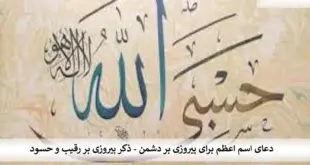 حسبي الله
لا اله الا هو
دعای اسم اعظم برای پیروزی بر دشمن - ذکر پیروزی بر رقیب و حسود